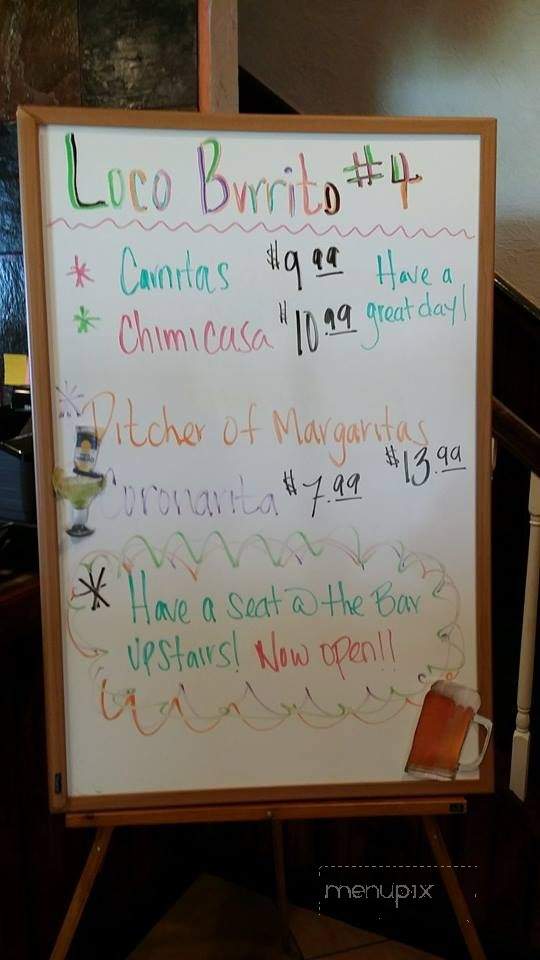 Loco Burrito #4
* Carnitas $9.99 Have a
* Chimicasa $10.99 great day!
* Pitcher of Margaritas
$13.99
Coronarita $7.99
* Have a seat @ the Bar
upstairs! Now open!!
menupix